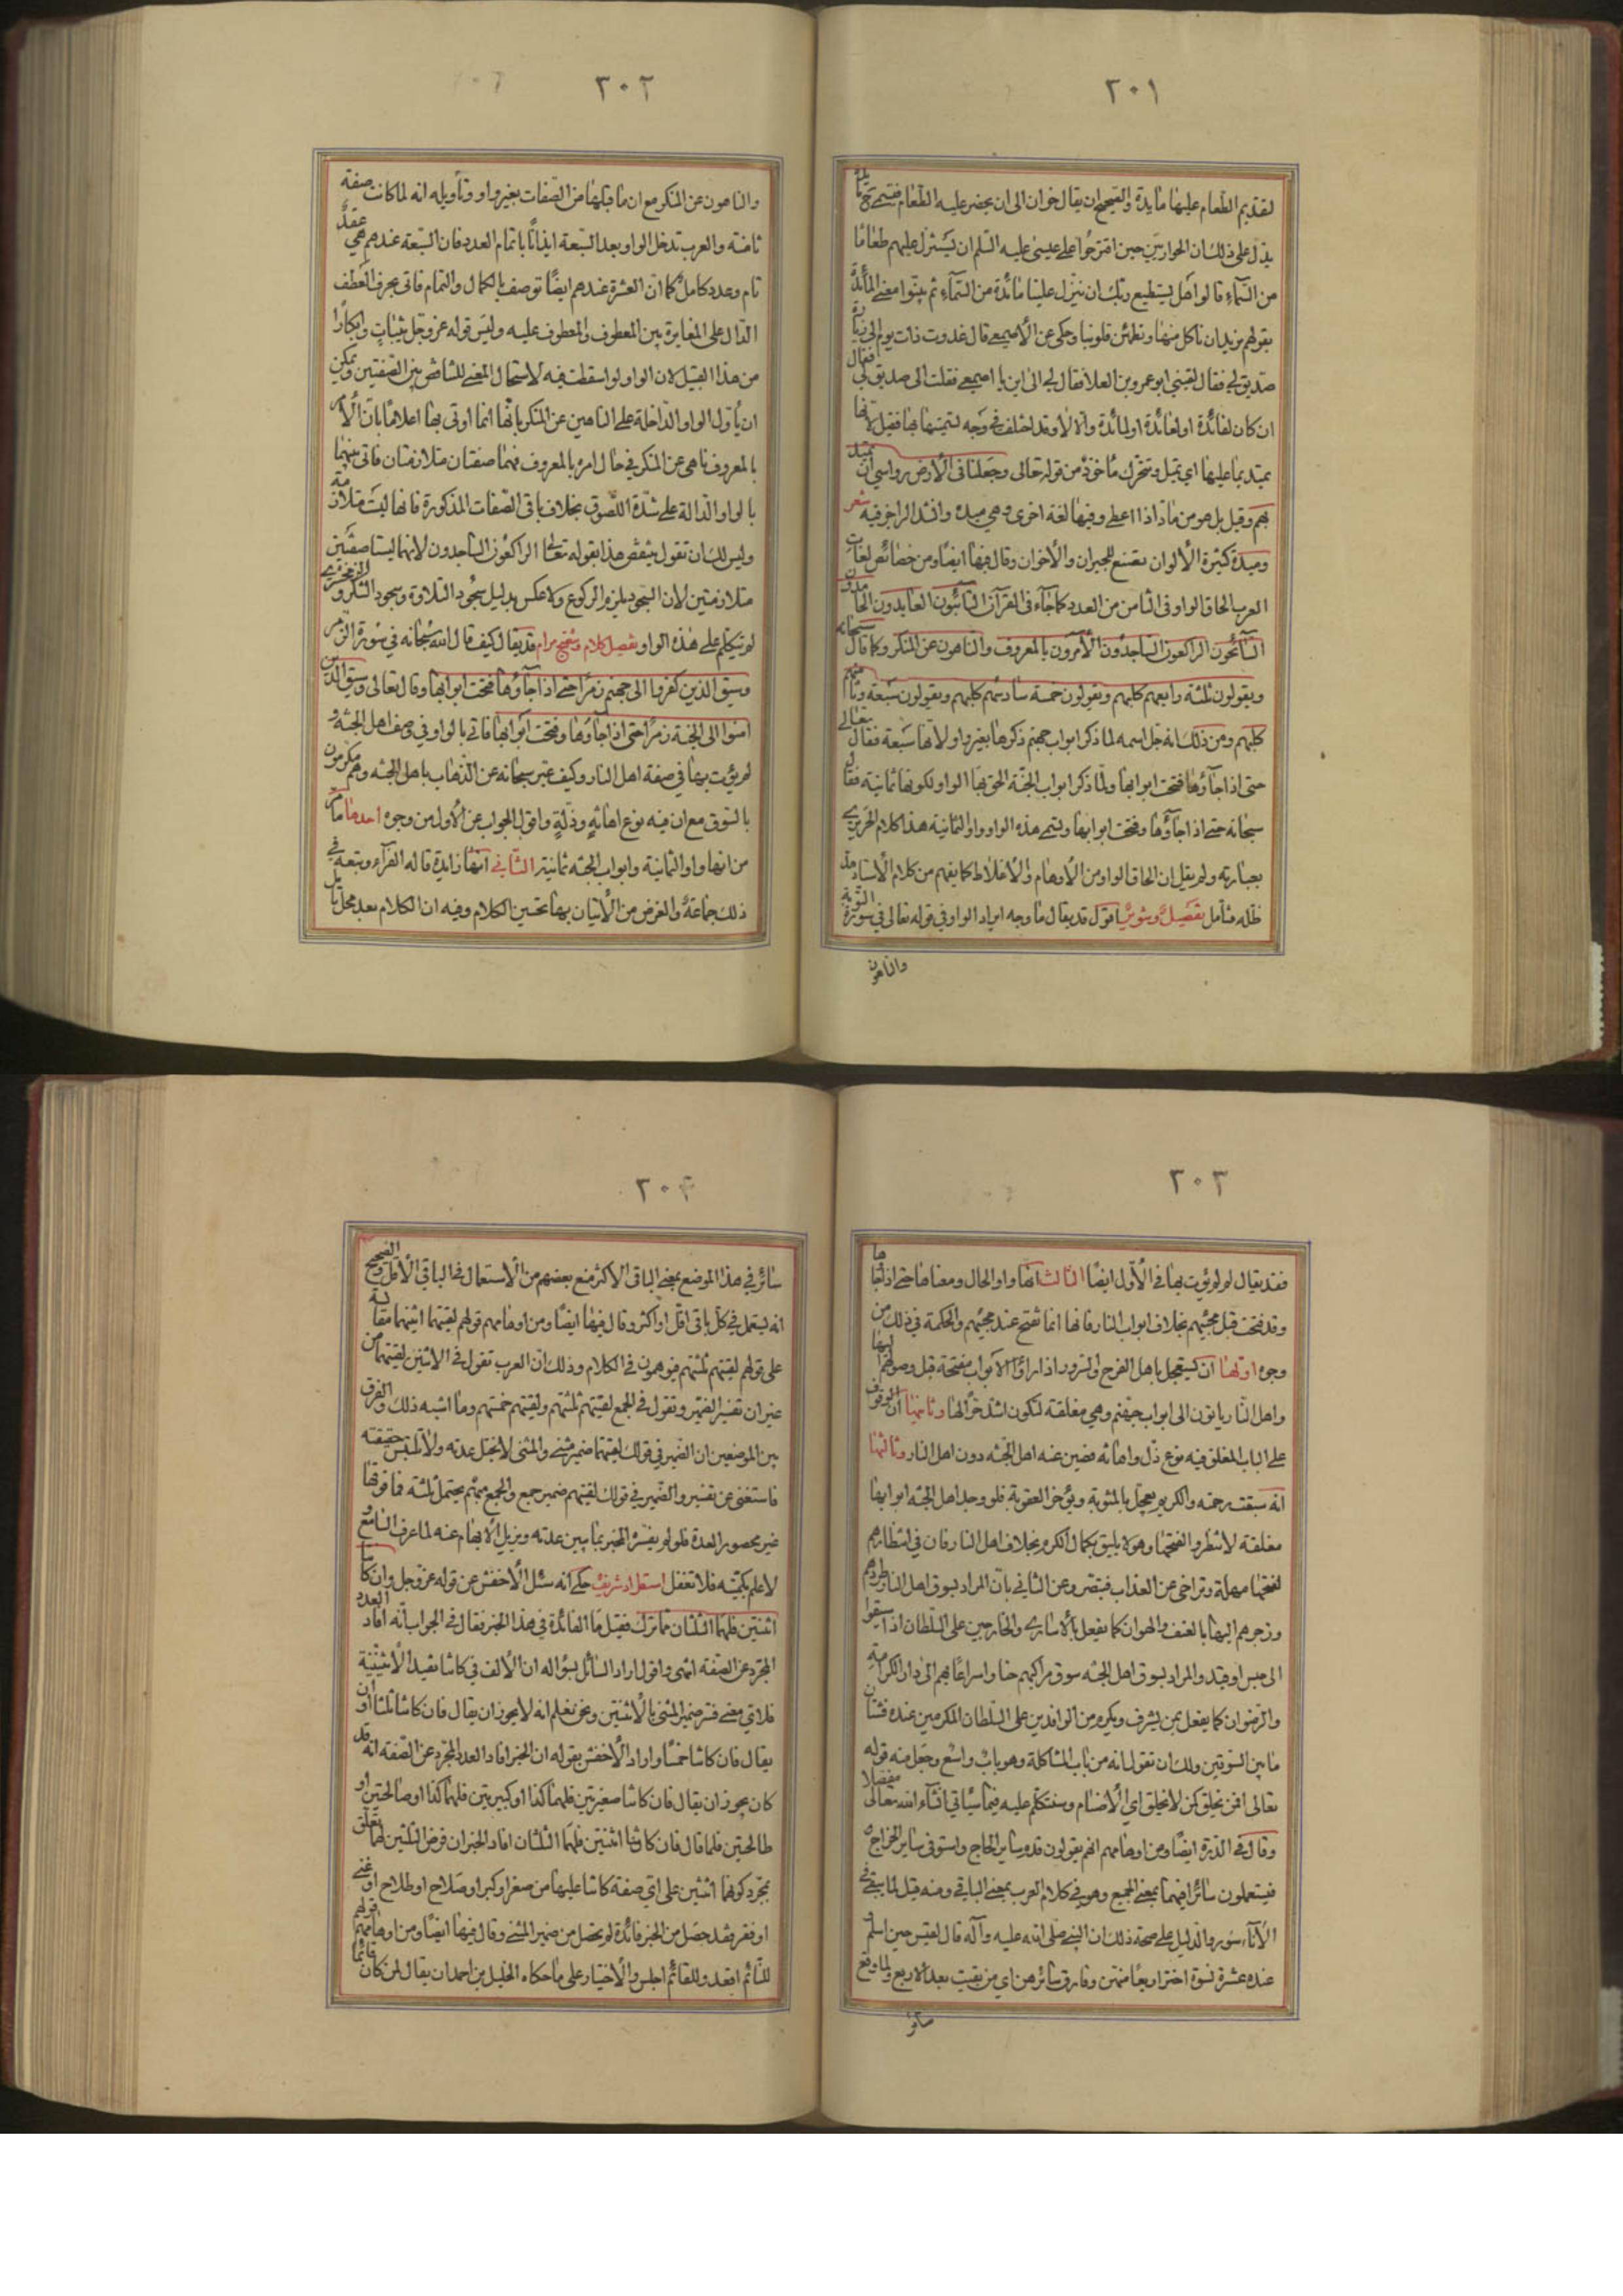 ٢٠١
لتقديم الطعام عليها مايدة والصحيح ان يقال خوان الى ان يحضر عليه الطعام فتسمى ح مايدة
يدل على ذلك ان الحواريين حين اقترحوا على عيسى عليه السلم ان يستنزل عليهم طعاما
من السماء قالوا هل يستطيع ربك ان ينزل علينا مائدة من السماء ثم بينوا معنى المائدة
بقولهم نريد ان ناكل منها وتطمئن قلوبنا وحكى عن الأصمعي قال غدوت ذات يوم الى زيارة
صديق لي فقال لقيني ابو عمرو بن العلا فقال لي الى اين يا اصمعي فقلت الى صديق لي فقال
ان كان لفائدة او لعائدة او لمائدة والا فلا وقد اختلف في وجه تسميتها بها فقيل لانها
تميد بما عليها اي تميل وتتحرك مأخوذ من قوله تعالى وجعلنا في الأرض رواسي ان تميد
بهم وقيل بل هو من ماد اذا اعطى وفيها لغة اخرى وهي ميدة وانشد الراجز فيه شعر
وميدة كثيرة الألوان تصنع للجيران والأخوان وقال فيها ايضا ومن خصائص لغات
العرب الحاق الواو في الثامن من العدد كما جاء في القرآن التائبون العابدون الحامدون
السائحون الراكعون الساجدون الأمرون بالمعروف والناهون عن المنكر وكما قال سبحانه
ويقولون ثلثة رابعهم كلبهم ويقولون خمسة سادسهم كلبهم ويقولون سبعة وثامنهم
كلبهم ومن ذلك انه جل اسمه لما ذكر ابواب جهنم ذكرها بغير واو لأنها سبعة فقال تعالى
حتى اذا جاؤها فتحت ابوابها ولما ذكر ابواب الجنة الحق بها الواو لكونها ثمانية فقال
سبحانه حتى اذا جاؤها وفتحت ابوابها وتسمى هذه الواو واو الثمانية هذا كلام الحريري
بعبارته ولم يقل ان الحاق الواو من الأوهام والأغلاط كما يفهم من كلام الأستاد مد
ظله فتأمل تفصيل وتنوير اقول قد يقال ما وجه ايراد الواو في قوله تعالى في سورة التوبة
والناهون
٢٠٢
والناهون عن المنكر مع ان ما قبلها من الصفات بغير واو وتأويله انه لما كانت صفة
ثامنة والعرب تدخل الواو بعد السبعة ايذانا باتمام العدد فان السبعة عندهم هي عقد
تام وعدد كامل كما ان العشرة عندهم ايضا توصف بالكمال والتمام فاتى بحرف العطف
الدال على المغايرة بين المعطوف والمعطوف عليه وليس قوله عز وجل ثيبات وابكارا
من هذا القبيل لان الواو لو اسقطت فيه لاستحال المعنى للتناقض بين الصفتين ويمكن
ان يأول الواو الداخلة على الناهين عن المنكر بانها انما اوتى بها اعلاما بان الأمر
بالمعروف ناهى عن المنكر في حال امره بالمعروف فهما صفتان متلازمتان فاتى بينهما
بالواو الدالة على شدة اللصوق بخلاف باقي الصفات المذكورة فانها ليست متلازمة
وليس لك ان تقول ينقض هذا بقوله تعالى الراكعون الساجدون لانهما ليستا صفتين
متلازمتين لان السجود يلزم الركوع ولا عكس بدليل سجود التلاوة وسجود الشكر والزمخشري
لم يتكلم على هذه الواو تفصيل كلام وتنقيح مرام قد يقال كيف قال الله سبحانه في سورة الزمر
وسيق الذين كفروا الى جهنم زمرا حتى اذا جاؤها فتحت ابوابها وقال تعالى وسيق الذين
امنوا الى الجنة زمرا حتى اذا جاؤها وفتحت ابوابها فاتى بالواو في وصف اهل الجنة و
لم يؤت بها في صفة اهل النار وكيف عبر سبحانه عن الذهاب باهل الجنة وهم مكرمون
بالسوق مع ان فيه نوع اهانة وذلة واقول الجواب عن الأول من وجوه احدها ما مر
من انها واو الثمانية وابواب الجنة ثمانية الثاني انها زايدة قاله الفراء وتبعه في
ذلك جماعة والغرض من الأتيان بها تحسين الكلام وفيه ان الكلام بعد محل تأمل
٢٠٣
فقد يقال لم لم يؤت بها في الأول ايضا الثالث انها واو الحال ومعناها حتى اذا جاؤها
وقد فتحت قبل مجيئهم بخلاف ابواب النار فانها انما تفتح عند مجيئهم والحكمة في ذلك من
وجوه اولها ان يستعجل باهل الفرح والسرور اذا رأوا الأبواب مفتحة قبل وصولهم اليها
واهل النار ياتون الى ابواب جهنم وهي مغلقة لتكون اشد حرا لها وثانيها ان الوقوف
على الباب المغلق فيه نوع ذل واهانة فصين عنه اهل الجنة دون اهل النار وثالثها
انه سبقت رحمته والكريم يعجل بالمثوبة ويؤخر العقوبة فلو وجد اهل الجنة ابوابها
مغلقة لانتظروا لفتحها وهو لا يليق بكمال الكرم بخلاف اهل النار فان في انتظارهم
لفتحها مهلة وتراخي عن العذاب فتبصر وعن الثاني بأن المراد بسوق اهل النار طردهم
وزجرهم اليها بالعنف والهوان كما يفعل بالأسارى والخارجين على السلطان اذا سيقوا
الى حبس او قيد والمراد بسوق اهل الجنة سوق مراكبهم حثا واسراعا بهم الى دار الكرامة
والرضوان كما يفعل بمن يشرف ويكرم من الوافدين على السلطان المكرمين عنده فشتان
ما بين السوقين ولك ان تقول انه من باب المشاكلة وهو باب واسع وجعل منه قوله
تعالى افمن يخلق كمن لا يخلق اي الأصنام وسنتكلم عليه فيما سيأتي انشاء الله تعالى مفصلا
وقال في الدرة ايضا ومن اوهامهم انهم يقولون قدم ساير الحاج واستوفى ساير الخراج
فيستعملون سائرا فيهما بمعنى الجميع وهو في كلام العرب بمعنى الباقي ومنه قيل لما يبقى في
الأناء سور والدليل على صحة ذلك ان النبي صلى الله عليه وآله قال لغيلان حين اسلم و
عنده عشرة نسوة اختر اربعا منهن وفارق سائرهن اي من بقيت بعد الأربع ولما وقع
سائر
٢٠٤
سائر في هذا الموضع بمعنى الباقي الأكثر منع بعضهم من الأستعمال في الباقي الأقل والصحيح
انه يستعمل في كل باقي اقل او اكثر وقال فيها ايضا ومن اوهامهم قولهم لقيتهما اثنيهما مقايسة
على قولهم لقيتهم ثلثتهم فيوهمون في الكلام وذلك ان العرب تقول في الاثنين لقيتهما من
غير ان تفسر الضمير وتقول في الجمع لقيتهم ثلثتهم ولقيتهم خمستهم وما اشبه ذلك والفرق
بين الموضعين ان الضمير في قولك لقيتهما ضمير مثنى والمثنى لا يختل عدته ولا تلتبس حقيقته
فاستغنى عن تفسير والضمير في قولك لقيتهم ضمير جمع والجمع مبهم يحتمل ثلثة فما فوقها
غير محصور العدة فلو لم يفسره المخبر بما يبين عدته ويزيل الأبهام عنه لما عرف السامع و
لا علم بكميته فلا تغفل استطراد شريف حكى انه سئل الأخفش عن قوله عز وجل وان كانتا
اثنتين فلهما الثلثان مما ترك فقيل ما الفائدة في هذا الخبر فقال في الجواب انه افاد العدد
المجرد عن الصفة انتهى واقول اراد السائل بسؤاله ان الألف في كانتا تفيد الأثنينية
فلاي معنى فسر ضمير المثنى بالأثنتين ونحن نعلم انه لا يجوز ان يقال فان كانتا ثلثا او ان
يقال فان كانتا خمسا واراد الأخفش بقوله ان الخبر افاد العدد المجرد عن الصفة انه قد
كان يجوز ان يقال فان كانتا صغيرتين فلهما كذا او كبيرتين فلهما كذا او صالحتين او
طالحتين فلما قال فان كانتا اثنتين فلهما الثلثان افاد الخبر ان فرض الثلثين لهما تعلق
بمجرد كونهما اثنتين على اي صفة كانتا عليها من صغر او كبر او صلاح او طلاح او غنى
او فقر فقد حصل من الخبر فائدة لم تحصل من ضمير المثنى وقال فيها ايضا ومن اوهامهم قولهم
للنائم اقعد وللقائم اجلس والأختيار على ما حكاه الخليل بن احمد ان يقال لمن كان قائما